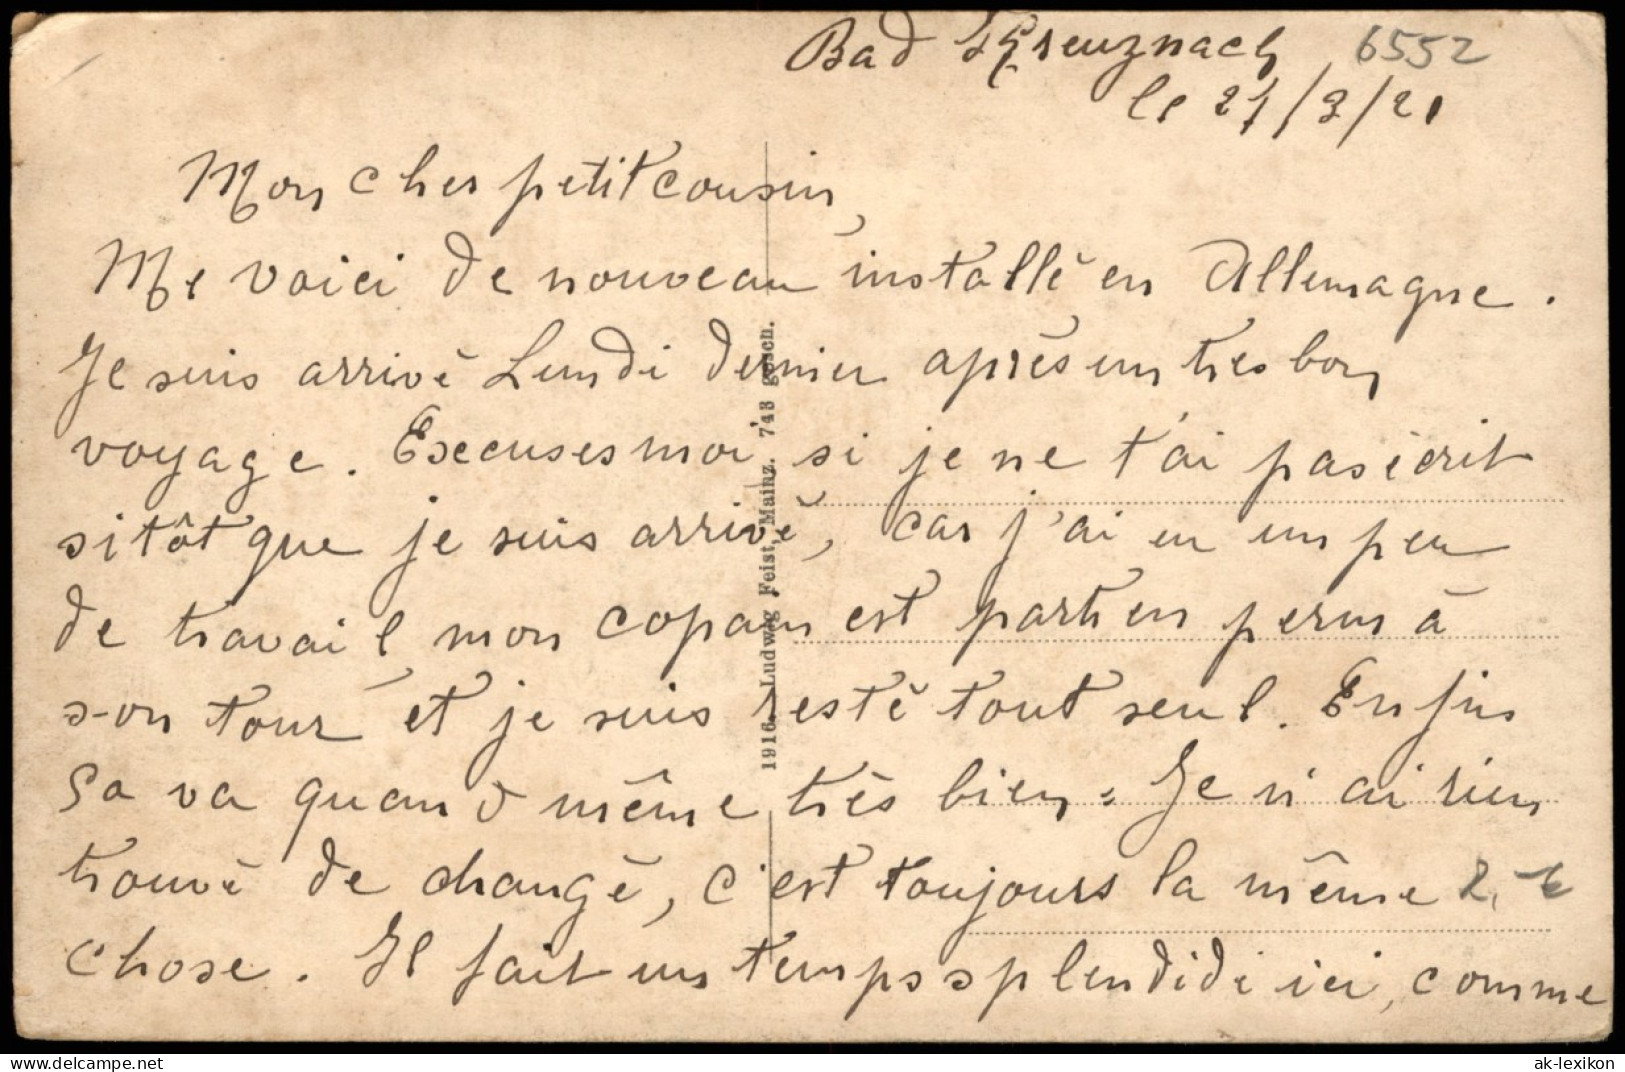 Bad Kreuznach 6552
le 27/9/21
Mon cher petit cousin,
Me voici de nouveau installé en Allemagne.
Je suis arrivé Lundi dernier après un tres bon
voyage. Excuses moi si je ne t'ai pas écrit
sitôt que je suis arrivé, car j'ai eu un peu
de travail, mon copain est parti en perm à
son tour et je suis resté tout seul. Enfin
ça va quand même très bien. Je n'ai rien
trouvé de changé, c'est toujours la même
chose. Il fait un temps splendidi ici, comme
1916. Ludwig Feist, Mainz. 743 gesch.
delcampe.net
ak-lexikon